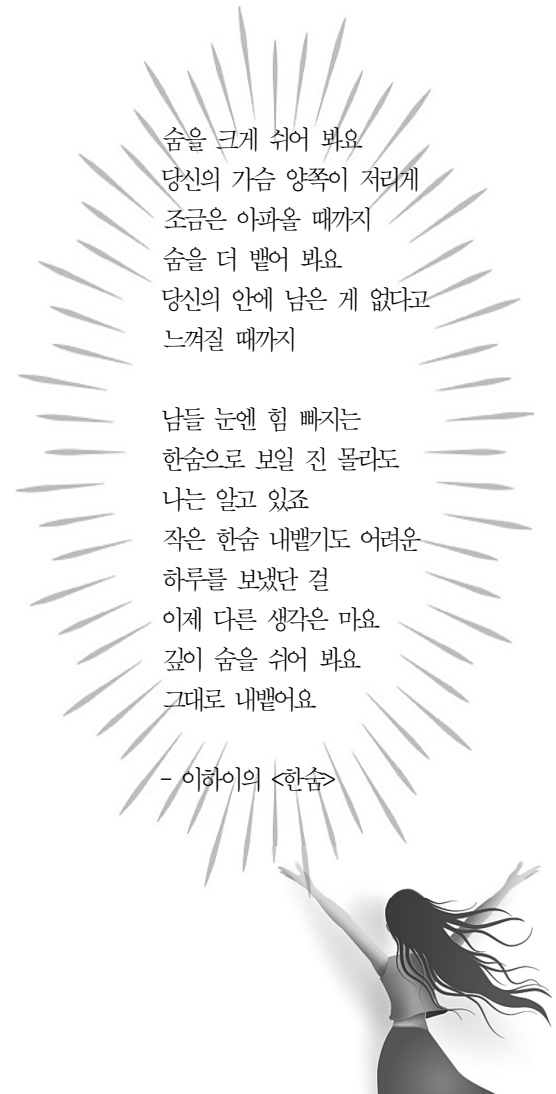 숨을 크게 쉬어 봐요
당신의 가슴 양쪽이 저리게
조금은 아파올 때까지
숨을 더 뱉어 봐요
당신의 안에 남은 게 없다고
느껴질 때까지

남들 눈엔 힘 빠지는
한숨으로 보일 진 몰라도
나는 알고 있죠
작은 한숨 내뱉기도 어려운
하루를 보냈단 걸
이제 다른 생각은 마요
깊이 숨을 쉬어 봐요
그대로 내뱉어요

- 이하이의 <한숨>